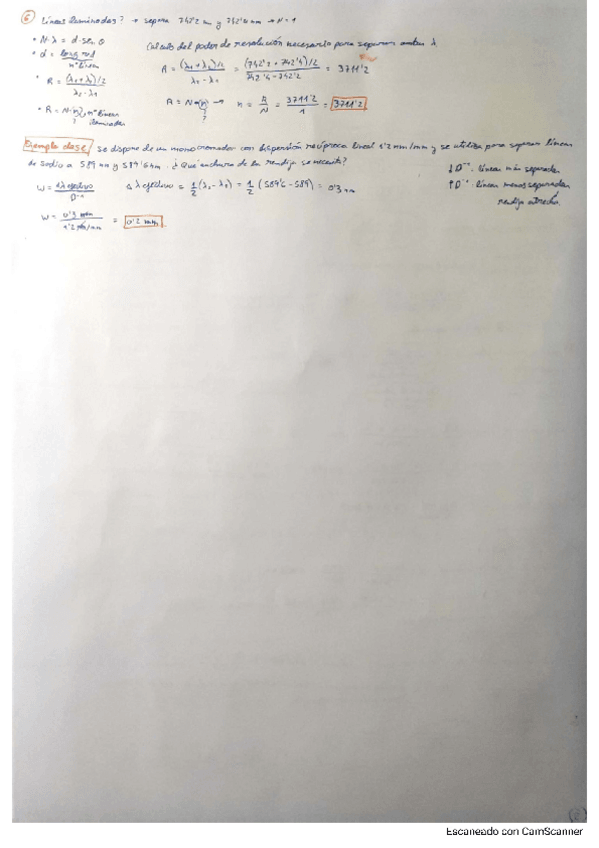 6 Líneas iluminadas? → separa 742'2 nm y 742'4 nm → N = 1
• N·λ = d·sen θ
Cálculo del poder de resolución necesario para separar ambas λ
• d = long red / nº líneas
• R = (λ₁+λ₂)/2 / λ₂-λ₁
R = (λ₁+λ₂)/2 / λ₂-λ₁ = (742'2 + 742'4)/2 / 742'4-742'2 = 3711'2
• R = N·n → nº líneas iluminadas
?
R = N·n → n = R/N = 3711'2/1 = 3711'2
?
Ejemplo clase se dispone de un monocromador con dispersión recíproca lineal 1'2 nm/mm y se utiliza para separar líneas
de sodio a 589 nm y 589'6 nm. ¿Qué anchura de la rendija se necesita?
↓D⁻¹ líneas más separadas
↑D⁻¹ líneas menos separadas
rendija estrecha.
W = Δλefectivo / D⁻¹
Δλefectivo = 1/2 (λ₂-λ₁) = 1/2 (589'6-589) = 0'3 nm
W = 0'3 nm / 1'2 nm/mm = 0'2 mm
Escaneado con CamScanner